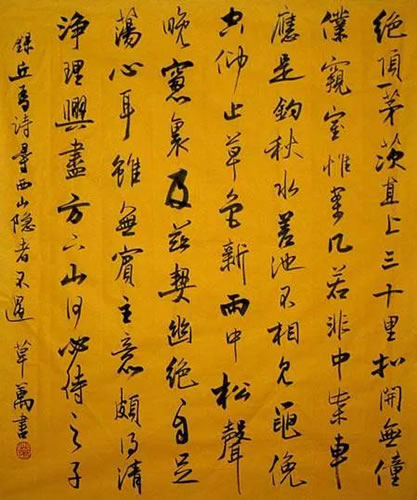 絕頂一茅茨直上三十里扣開無僮
僕窺室惟案几若非巾柴車
應是釣秋水差池不相見黽俛
空仰止草色新雨中松聲
晚窻裏及茲契幽絕自足
蕩心耳雖無賓主意頗得清
淨理興盡方下山何必待之子
錄丘為詩尋西山隱者不遇 草萬書